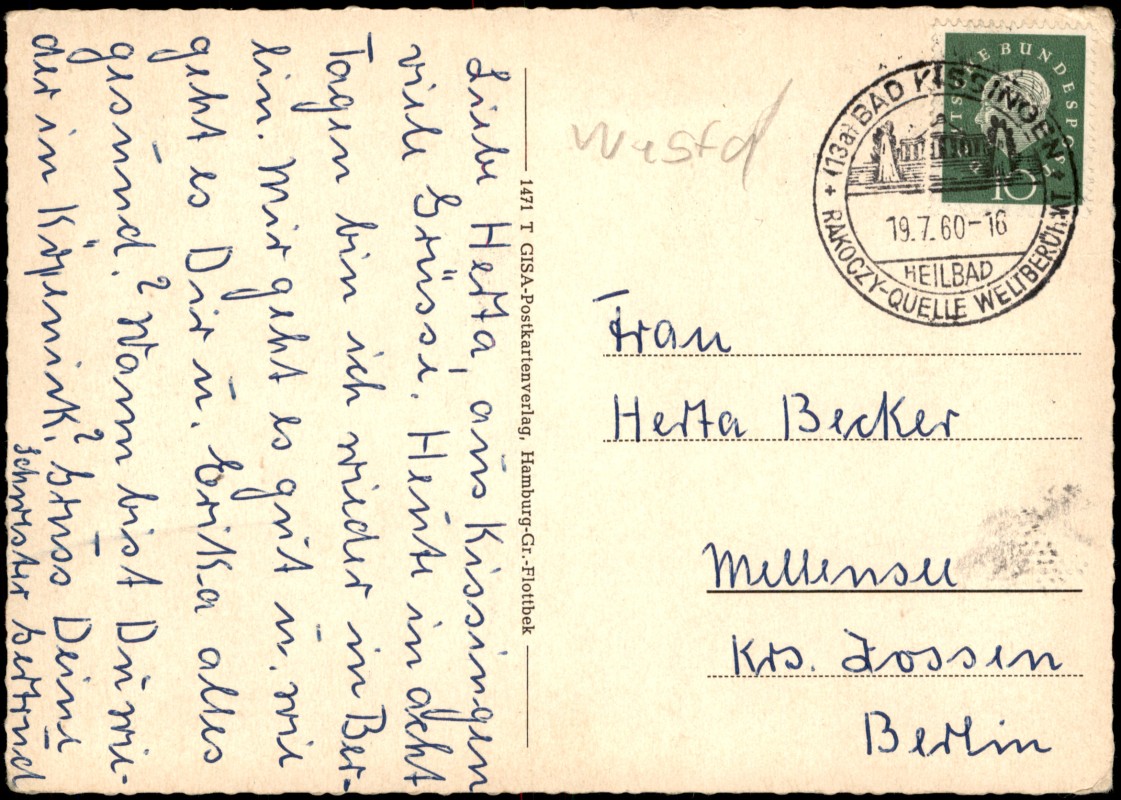 Liebe Herta, aus Kissingen
viele Grüsse. Heute in acht
Tagen bin ich wieder in Ber-
lin. Mir geht es gut u. wie
geht es Dir u. Erika alles
gesund? Wann bist Du wie-
der in Köpenick? Gruss Deine
Schwester Gertrud
1471 T GISA-Postkartenverlag, Hamburg-Gr.-Flottbek
Westd
DEUTSCHE BUNDESPOST
10
(13a) BAD KISSINGEN
19.7.60-16
HEILBAD
RAKOCZY-QUELLE WELTBERÜHMT
Frau
Herta Becker
Mellensee
Krs. Zossen
Berlin